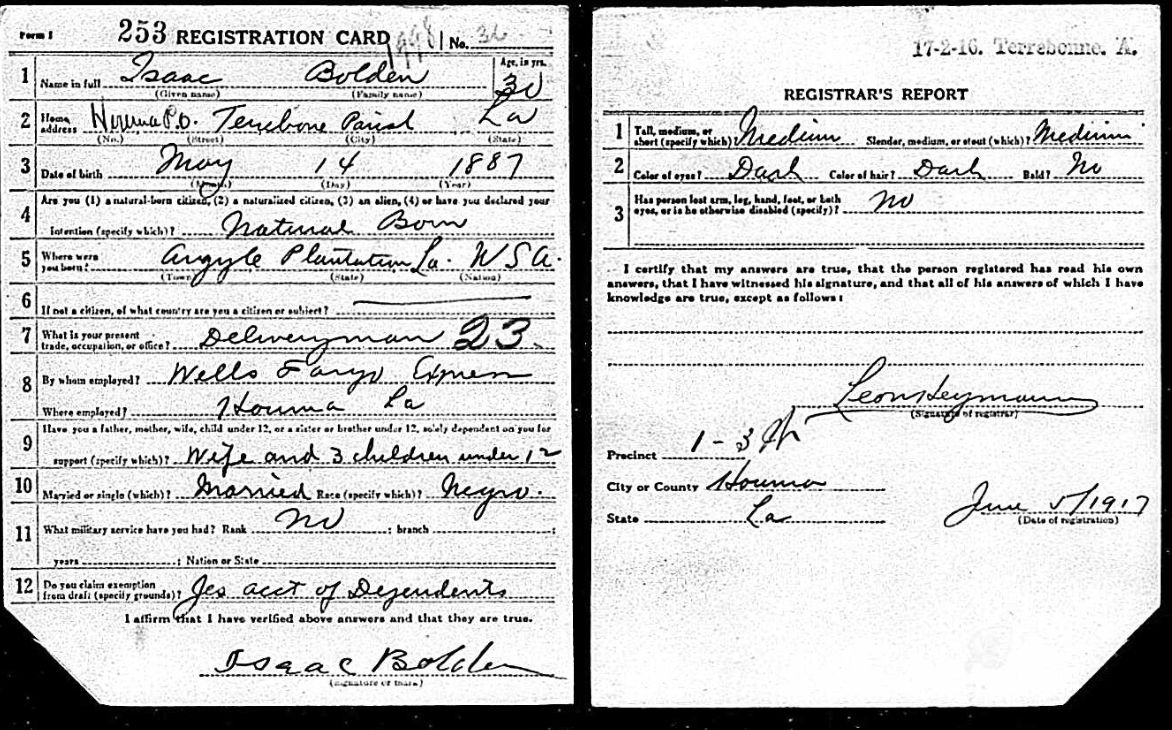 Form 1 253 REGISTRATION CARD 1998 No. 36
1 Name in full Isaac Bolden Age, in yrs. 30
(Given name) (Family name)
2 Home address Houma P.O. Terrebone Parish La
(No.) (Street) (City) (State)
3 Date of birth May 14 1887
(Month) (Day) (Year)
4 Are you (1) a natural-born citizen, (2) a naturalized citizen, (3) an alien, (4) or have you declared your
intention (specify which)? Natural Born
5 Where were you born? Argyle Plantation La. USA.
(Town) (State) (Nation)
6 If not a citizen, of what country are you a citizen or subject?
7 What is your present trade, occupation, or office? Deliveryman 23
8 By whom employed? Wells Fargo Express
Where employed? Houma La
9 Have you a father, mother, wife, child under 12, or a sister or brother under 12, solely dependent on you for
support (specify which)? Wife and 3 children under 12
10 Married or single (which)? Married Race (specify which)? Negro.
11 What military service have you had? Rank no ; branch ;
years ; Nation or State
12 Do you claim exemption from draft (specify grounds)? Yes acct of Dependents
I affirm that I have verified above answers and that they are true.
Isaac Bolden
(Signature or mark)
17-2-16. Terrebonne. A.
REGISTRAR'S REPORT
1 Tall, medium, or short (specify which)? Medium Slender, medium, or stout (which)? Medium
2 Color of eyes? Dark Color of hair? Dark Bald? No
3 Has person lost arm, leg, hand, foot, or both
eyes, or is he otherwise disabled (specify)? No
I certify that my answers are true, that the person registered has read his own
answers, that I have witnessed his signature, and that all of his answers of which I have
knowledge are true, except as follows:
Leon Heymann
(Signature of registrar)
Precinct 1-3
City or County Houma
State La
June 5/1917
(Date of registration)